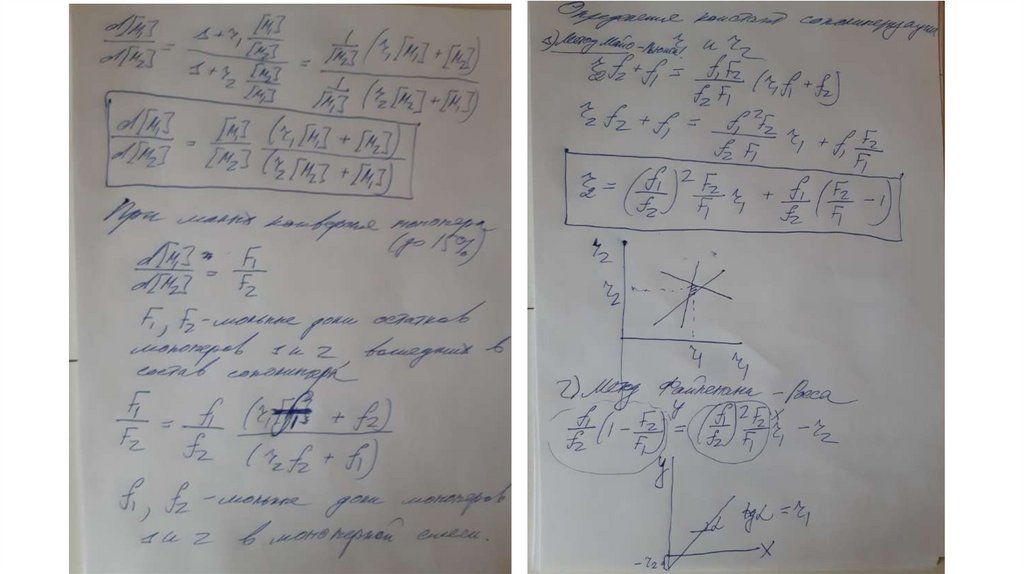 d[M₁]/d[M₂] = (1 + r₁ [M₁]/[M₂]) / (1 + r₂ [M₂]/[M₁]) = (1/[M₂] (r₁[M₁] + [M₂])) / (1/[M₁] (r₂[M₂] + [M₁]))
d[M₁]/d[M₂] = [M₁]/[M₂] (r₁[M₁] + [M₂]) / (r₂[M₂] + [M₁])
При малых конверсиях мономера
(до 15%)
d[M₁]/d[M₂] = F₁/F₂
F₁, F₂ - мольные доли остатков
мономеров 1 и 2, вошедших в
состав сополимера
F₁/F₂ = f₁/f₂ (r₁f₁ + f₂) / (r₂f₂ + f₁)
f₁, f₂ - мольные доли мономеров
1 и 2 в мономерной смеси.
Определения констант сополимеризации
r₁ и r₂
1) Метод Майо-Льюиса
r₂f₂ + f₁ = f₁F₂/f₂F₁ (r₁f₁ + f₂)
r₂f₂ + f₁ = f₁²F₂/f₂F₁ r₁ + f₁ F₂/F₁
r₂ = (f₁/f₂)² F₂/F₁ r₁ + f₁/f₂ (F₂/F₁ - 1)
r₂
r₂
r₁ r₁
2) Метод Файнемана - Росса
y x
f₁/f₂ (1 - F₂/F₁) = (f₁/f₂)² F₂/F₁ r₁ - r₂
y
α tgα = r₁
-r₂ x